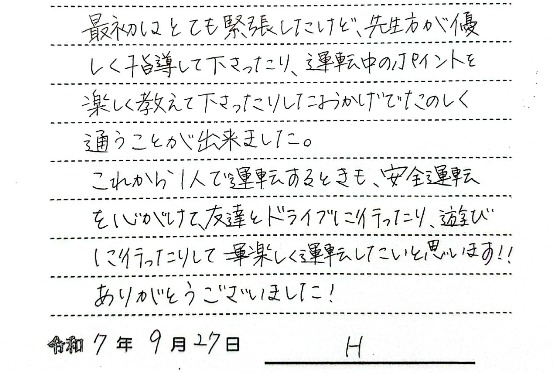 最初はとても緊張したけど、先生方が優
しく指導して下さったり、運転中のポイントを
楽しく教えて下さったりしたおかげでたのしく
通うことが出来ました。
これから1人で運転するときも、安全運転
を心がけて、友達とドライブに行ったり、遊び
に行ったりして楽しく運転したいと思います!!
ありがとうございました!
令和7年9月27日 H